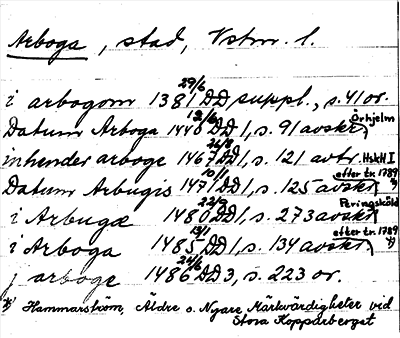 Arboga, stad, Vstm. l.
i arbogom 1381 29/6 DD suppl., s. 41 or.
Datum Arboga 1440 12/6 DD 1, s. 91 avskr. Örhjelm
inhender arboge 1467 26/8 DD 1, s. 121 avtr. HskH I
Datum Arbugis 1471 10/1 DD 1, s. 125 avskr. efter tr. 1789 *)
i Arbugæ 1480 22/9 DD 1, s. 273 avskr. Peringsköld
i Arboga 1485 13/1 DD 1, s. 134 avskr. efter tr. 1789 *)
j arboge 1486 24/6 DD 3, s. 223 or.
*) Hammarström, Äldre o. Nyare Märkvärdigheter ved
Stora Kopparberget